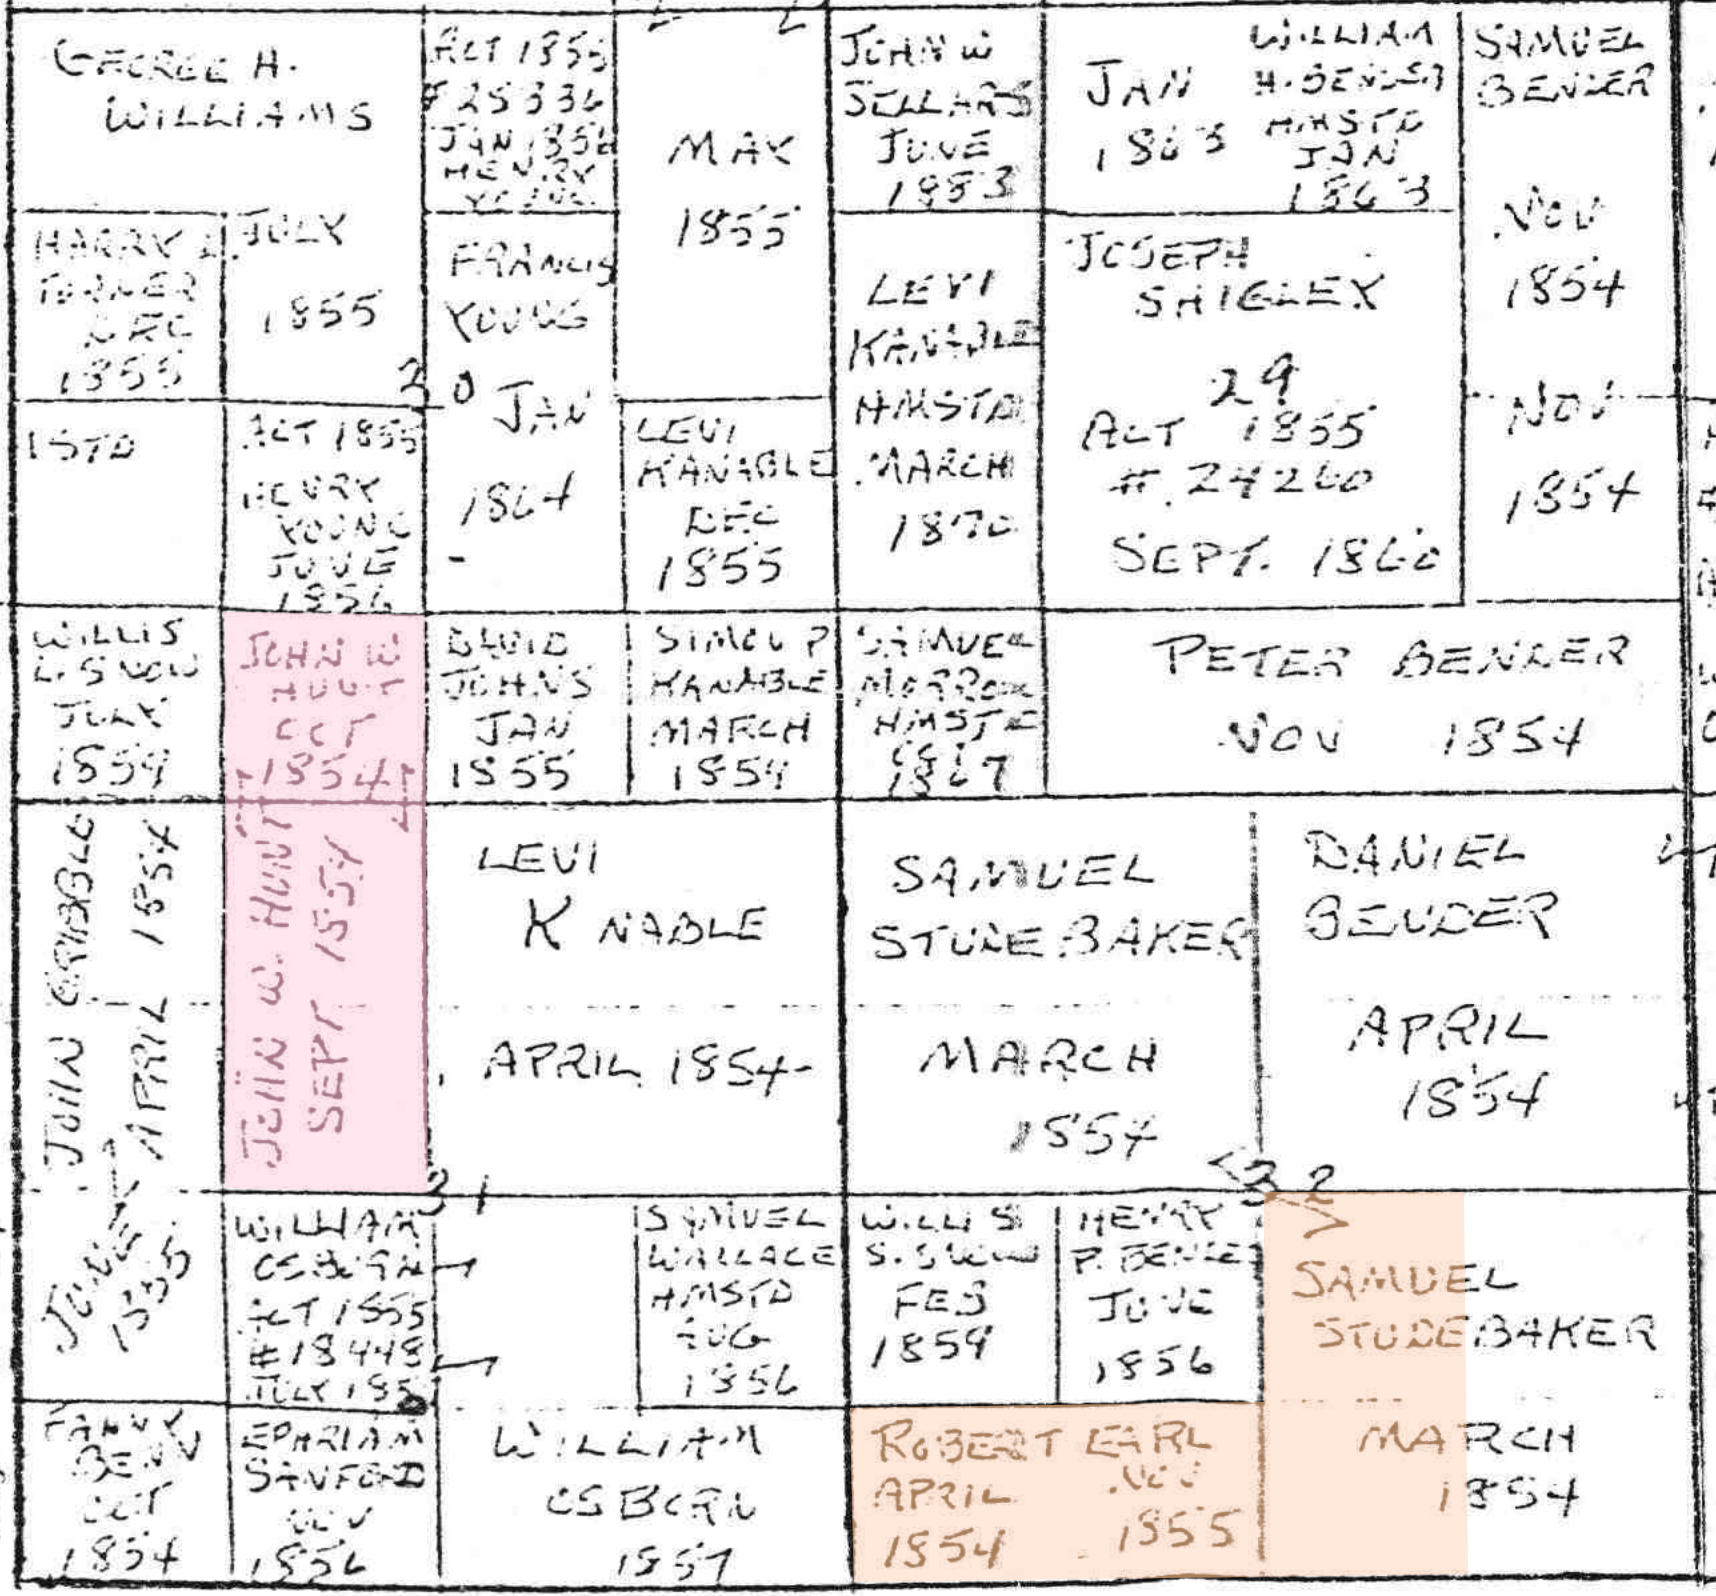 GEORGE H.
WILLIAMS
ACT 1855
# 25336
JAN 1856
HENRY
YOUNG
MAY
1855
JOHN W
SELLARS
JUNE
1883
JAN
1863
WILLIAM
H. BENDER
HMSTD
JAN
1863
SAMUEL
BENDER
NOV
1854
NOV
1854
HARRY L.
TURNER
DEC
1855
JULY
1855
20
FRANCIS
YOUNG
JAN
1864
LEVI
KANABLE
HMSTD
MARCH
1870
JOSEPH
SHIGLEY
29
ACT 1855
#. 24260
SEPT. 1860
1STD
ACT 1855
HENRY
YOUNG
JUNE
1856
LEVI
KANABLE
DEC
1855
WILLIS
S. SNOW
JULY
1859
JOHN W
HUNT
OCT
1854
DAVID
JOHNS
JAN
1855
SIMON P
KANABLE
MARCH
1854
SAMUEL
MORROW
HMSTD
1867
PETER BENDER
NOV 1854
JOHN GRIBBLE
APRIL 1854
JOHN W. HUNT
SEPT 1854
LEVI
KNABLE
APRIL 1854
SAMUEL
STUDEBAKER
MARCH
1854
DANIEL
BENDER
APRIL
1854
31
32
JUNE
1855
WILLIAM
OSBORN
ACT 1855
# 18448
JULY
SAMUEL
WALLACE
HMSTD
AUG
1856
WILLIS
S. SNOW
FEB
1859
HENRY
P. BENDER
JUNE
1856
SAMUEL
STUDEBAKER
MARCH
1854
BENN
OCT
1854
EPHRIAM
SANFORD
NOV
1856
WILLIAM
OSBORN
1857
ROBERT EARL
APRIL NOV
1854 1855